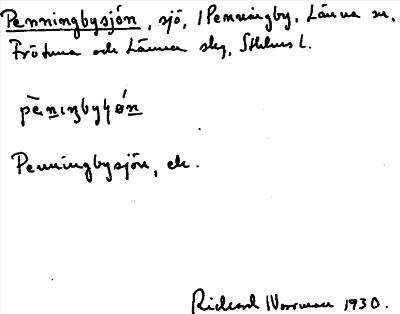 Penningbysjön, sjö, / Penningby, Länna sn,
Frötuna och Länna skg, Sthlms l.
pèniŋbyʂǿn
Penningbysjön, ek.
Rickard Norrman 1930.